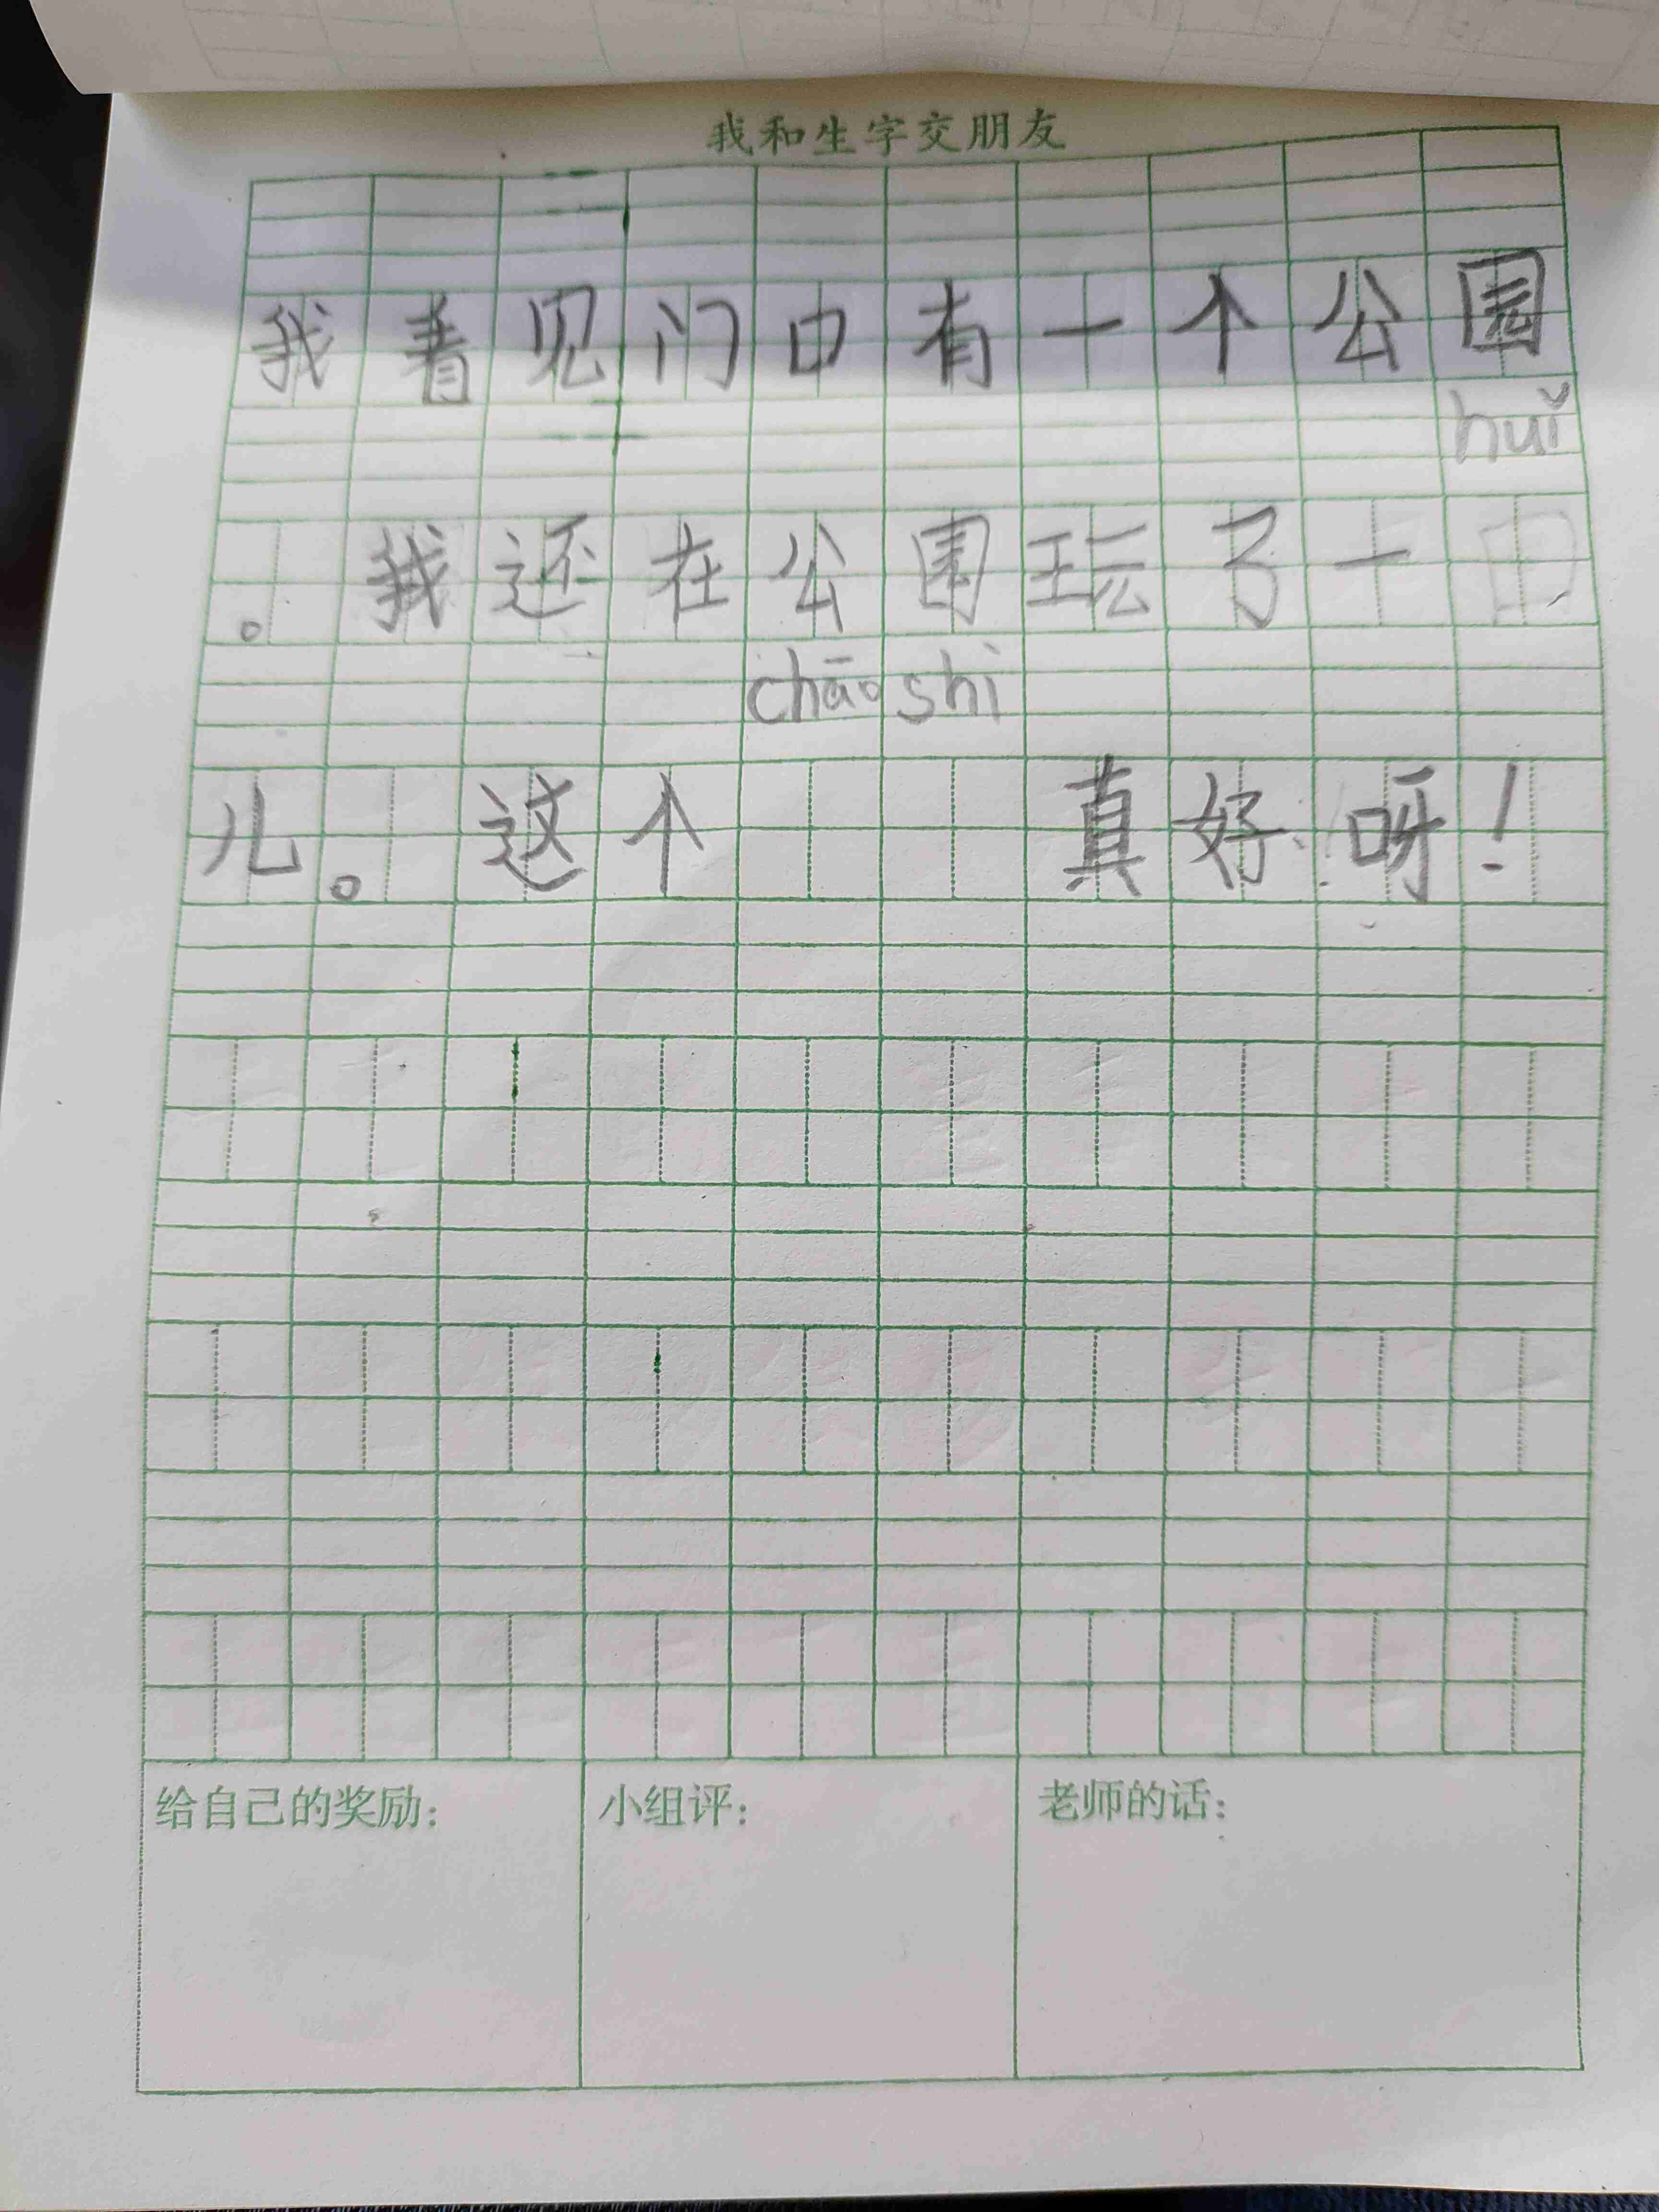 我和生字交朋友
我看见门口有一个公园
huǐ
。我还在公围玩了一
chāo shì
儿。这个 真好呀!
给自己的奖励: 小组评: 老师的话: